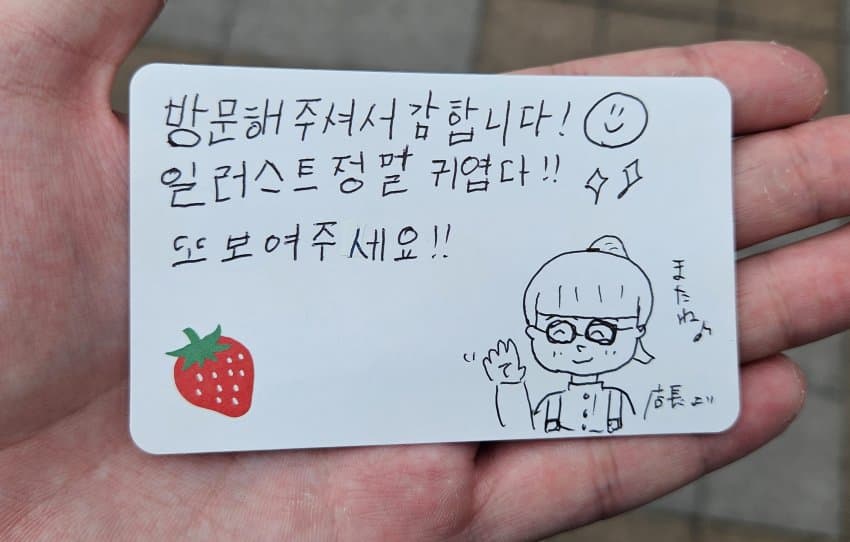 방문해주셔서 감합니다!
일러스트 정멀 귀엽다!!
또 보여주세요!!
またね♪
店長より